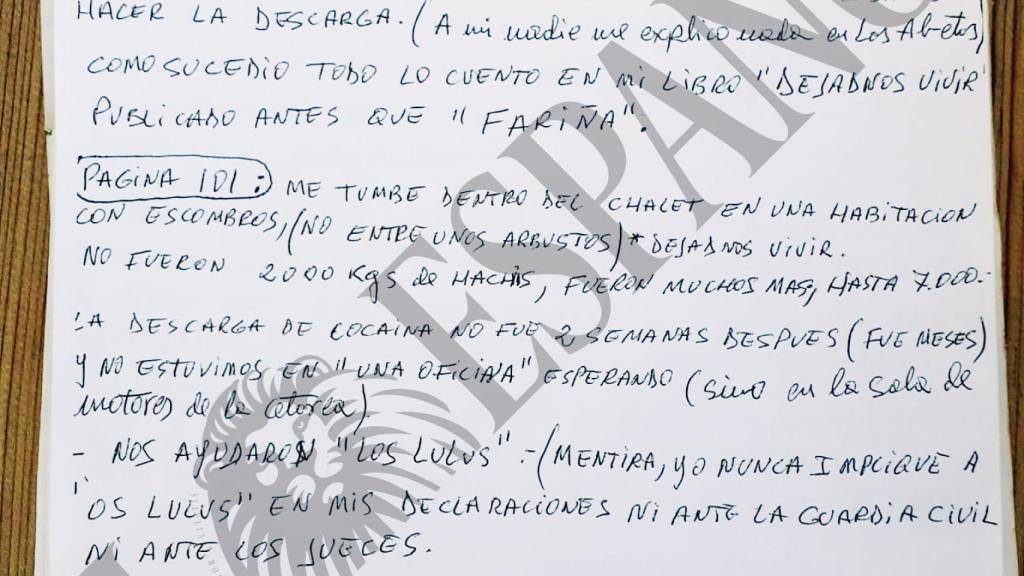 HACER LA DESCARGA. (A mi nadie me explico nada en Los Abetos)
COMO SUCEDIO TODO LO CUENTO EN MI LIBRO "DEJADNOS VIVIR"
PUBLICADO ANTES QUE "FARIÑA".
PAGINA 101: ME TUMBE DENTRO DEL CHALET EN UNA HABITACION
CON ESCOMBROS, (NO ENTRE UNOS ARBUSTOS) * DEJADNOS VIVIR.
NO FUERON 2000 Kgs de HACHIS, FUERON MUCHOS MAS, HASTA 7.000.-
LA DESCARGA DE COCAINA NO FUE 2 SEMANAS DESPUES (FUE MESES)
Y NO ESTUVIMOS EN "UNA OFICINA" ESPERANDO (sino en la sala de
motores de la cetarea).
- NOS AYUDARON "LOS LULUS" .- (MENTIRA, YO NUNCA IMPLIQUE A
"LOS LULUS" EN MIS DECLARACIONES NI ANTE LA GUARDIA CIVIL
NI ANTE LOS JUECES.
ESPAÑO